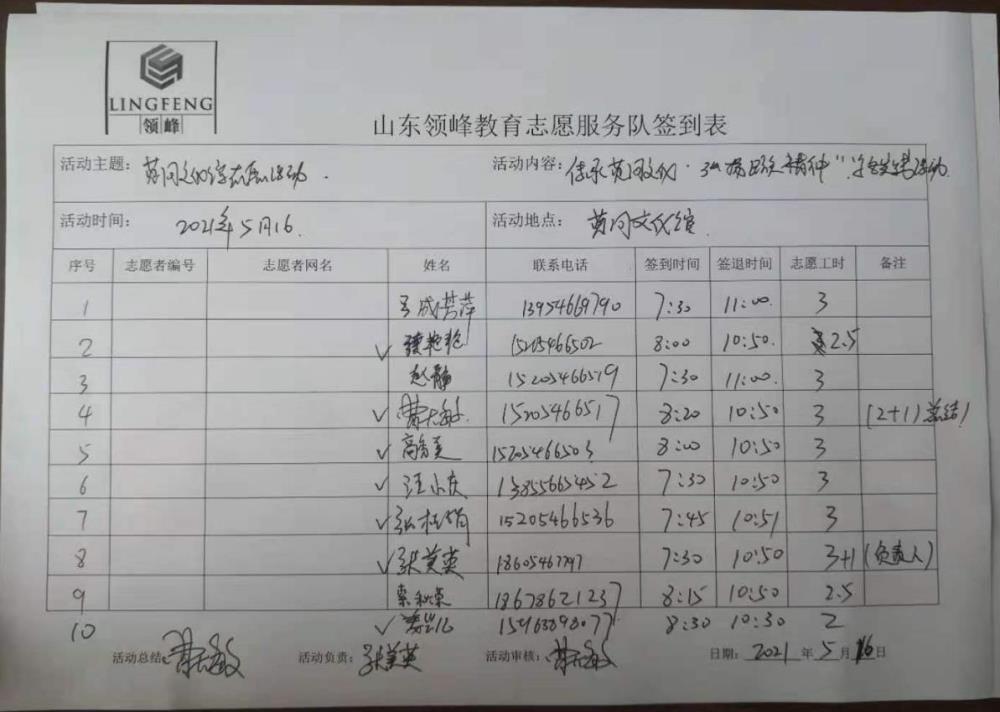 LINGFENG
领峰
山东领峰教育志愿服务队签到表
活动主题：黄河文化馆志愿活动. 活动内容：传承黄河文化·弘扬民族精神"
活动时间： 2021年5月16. 活动地点： 黄河文化馆.
序号 志愿者编号 志愿者网名 姓名 联系电话 签到时间 签退时间 志愿工时 备注
1 13954669790 7:30 11:00. 3
2 ✓ 15205466502 8:00 10:50. 2.5
3 赵静 15205466519 7:30 11:00. 3
4 ✓ 15205466517 8:20 10:50 3 (2+1)总结)
5 ✓ 高秀美 15205466503 8:00 10:50 3
6 ✓ 汪小庆 13855665452 7:30 10:50 3
7 ✓ 15205466536 7:45 10:51 3
8 ✓ 张美英 7:30 10:50 3+1 (负责人)
9 18678621237 8:15 10:50 2.5
10 ✓ 8:30 10:30 2
活动总结： 活动负责：张美英 活动审核： 日期：2021年5月16日